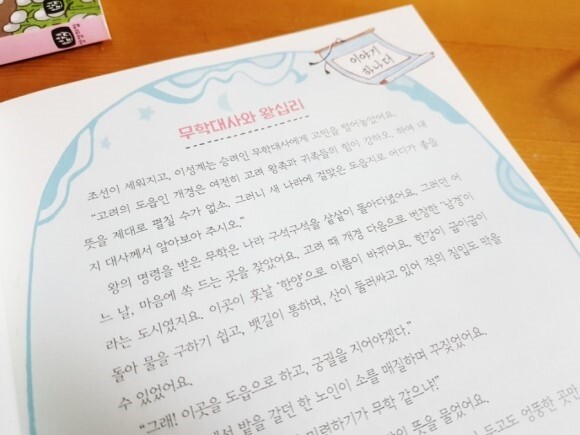 이야기
하나 더
무학대사와 왕십리
조선이 세워지고, 이성계는 승려인 무학대사에게 고민을 털어놓았어요.
"고려의 도읍인 개경은 여전히 고려 왕족과 귀족들의 힘이 강하오. 하여 내
뜻을 제대로 펼칠 수가 없소. 그러니 새 나라에 걸맞은 도읍지로 어디가 좋을
지 대사께서 알아보아 주시오."
왕의 명령을 받은 무학은 나라 구석구석을 샅샅이 돌아다녔어요. 그러던 어
느 날, 마음에 쏙 드는 곳을 찾았어요. 고려 때 개경 다음으로 번창한 '남경'이
라는 도시였지요. 이곳이 훗날 '한양'으로 이름이 바뀌어요. 한강이 굽이굽이
돌아 물을 구하기 쉽고, 뱃길이 통하며, 산이 둘러싸고 있어 적의 침입도 막을
수 있었어요.
"그래! 이곳을 도읍으로 하고, 궁궐을 지어야겠다."
밭을 갈던 한 노인이 소를 매질하며 꾸짖었어요.
미련하기가 무학 같으냐!"
뜻을 물었어요.
두고도 엉뚱한 곳만